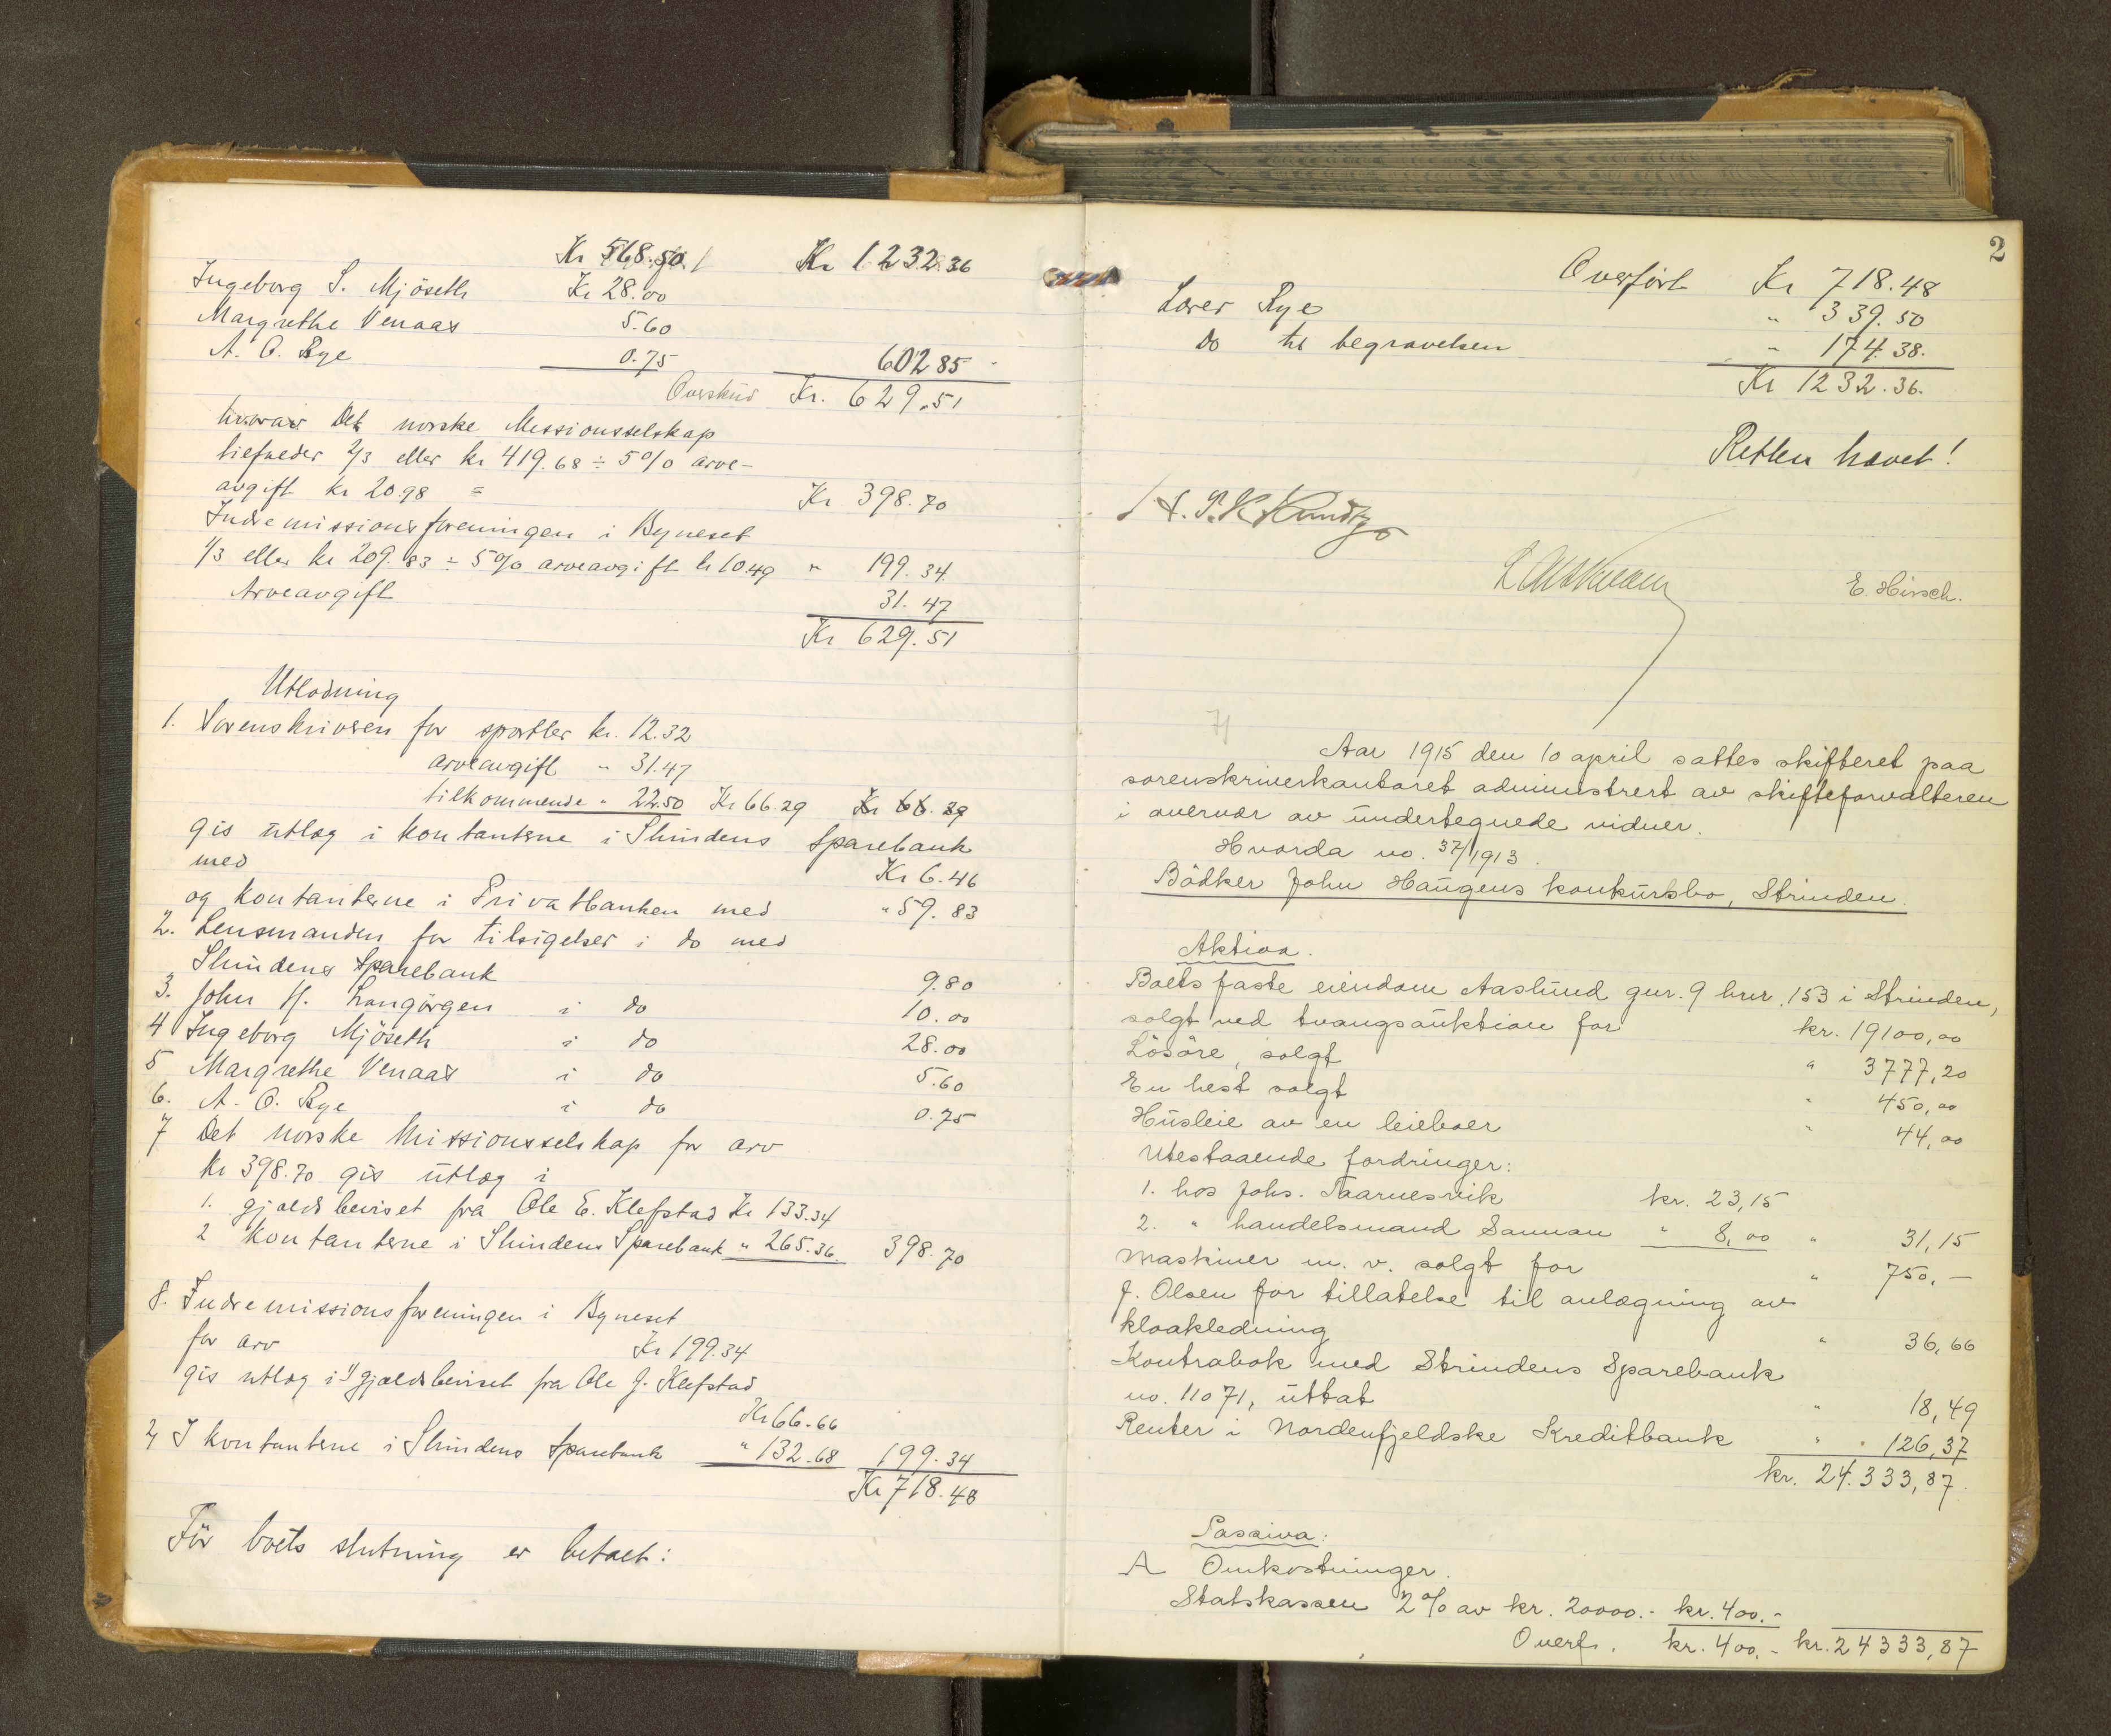 Kr 568.50 Kr 1232.36
Ingeborg S. Mjöseth Kr 28.00
Margrethe Venaas 5.60
A. O. Rye 0.75 602 85
Overskud Kr. 629.51
hvorav Det norske Missionsselskap
tilfalder 2/3 eller kr 419.68 ÷ 5% arve-
avgift kr 20.98 = Kr 398.70
Indremissionsforeningen i Byneset
1/3 eller kr 209.83 ÷ 5% arveavgift kr 10.49 " 199.34
Arveavgift 31.47
Kr 629.51
Utlodning
1. Sorenskriveren for sportler kr. 12.32
arveavgift " 31.47
tilkommende " 22.50 Kr 66.29 Kr 66.29
gis utlæg i kontanterne i Strindens Sparebank
med Kr 6.46
og kontanterne i Privatbanken med " 59.83
2. Lensmanden for tilsigelser i do med
Strindens Sparebank 9.80
3. John H. Langörgen i do 10.00
4 Ingeborg Mjöseth i do 28.00
5 Margrethe Venaas i do 5.60
6. A. O. Rye i do 0.75
7 Det norske Missionsselskap for arv
Kr 398.70 gis utlæg i
1. gjældsbeviset fra Ole E. Klefstad Kr 133.34
2 Kontanterne i Strindens Sparebank " 265.36. 398.70
8. Indremissionsforeningen i Byneset
for arv Kr 199.34
gis utlæg i 1) gjældsbeviset fra Ole J. Klefstad
Kr 66.66
2) I kontanterne i Strindens Sparebank " 132.68 199.34
Kr 718.48
Før boets slutning er betalt:
2
Overført Kr 718.48
Lærer Rye " 339.50
Do til begravelsen " 174.38.
Kr 1232.36.
Retten hævet!
E. Hirsch.
7/
Aar 1915 den 10 april sattes skifteret paa
sorenskriverkontoret administrert av skifteforvalteren
i overvær av undertegnede vidner.
Hvorda no. 37/1913.
Bödker John Haugens konkursbo, Strinden.
Aktiva.
Boets faste eiendom Aaslund gnr. 9 brnr. 153 i Strinden,
solgt ved tvangsauktion for kr. 19100,00
Lösöre, solgt " 3777,20
En hest solgt " 450,00
Husleie av en leieboer " 44,00
Utestaaende fordringer:
1. hos Johs. Taarnesvik kr. 23,15
2. " handelsmand Sannan " 8,00 " 31,15
Maskiner m. v. solgt for " 750,-
J. Olsen for tillatelse til anlægning av
kloakledning " 36,66
Kontrabok med Strindens Sparebank
no. 11071, uttat " 18,49
Renter i Nordenfjeldske Kreditbank " 126,37
kr. 24.333,87
Passiva:
A Omkostninger.
Statskassen 2% av kr. 20000.- kr. 400.-
Overf. kr. 400,- kr. 24333,87